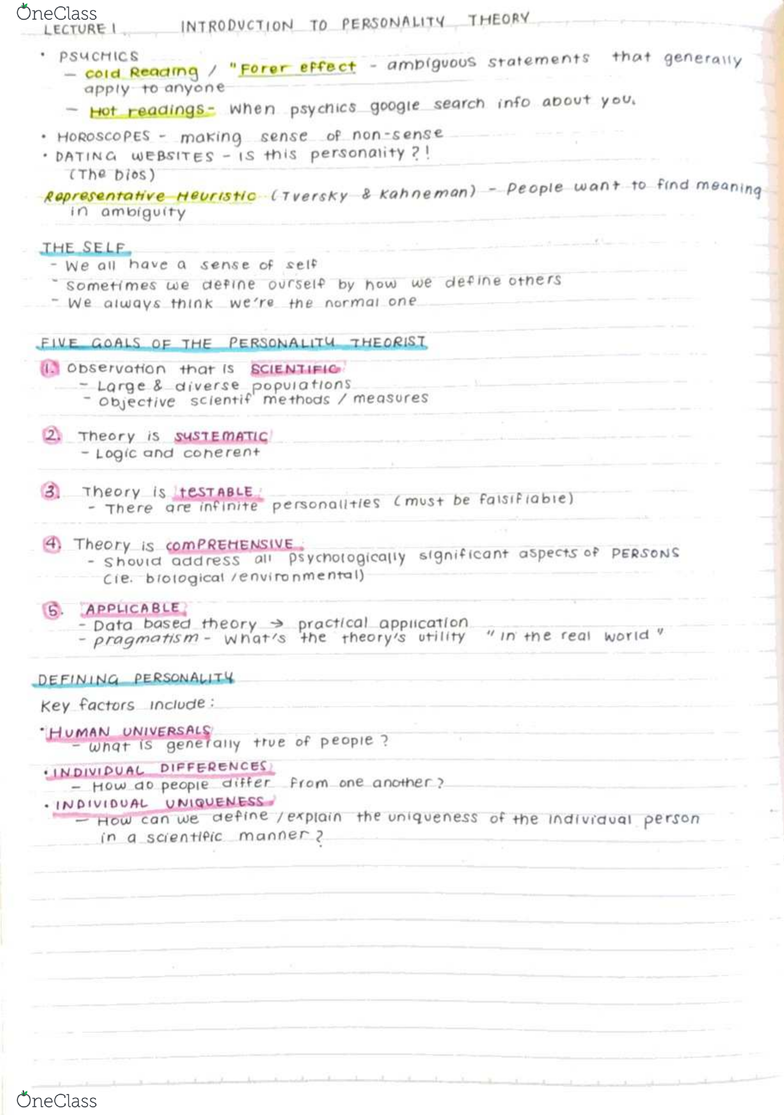 OneClass
LECTURE 1 INTRODUCTION TO PERSONALITY THEORY
• PSYCHICS
– Cold Reading / "Forer effect - ambiguous statements that generally
apply to anyone
– Hot readings - when psychics google search info about you.
• HOROSCOPES - making sense of non-sense
• DATING WEBSITES - IS this personality?!
(The bios)
Representative Heuristic (Tversky & Kahneman) - People want to find meaning
in ambiguity
THE SELF
- We all have a sense of self
- Sometimes we define ourself by how we define others
- We always think we're the normal one
FIVE GOALS OF THE PERSONALITY THEORIST
1. Observation that is SCIENTIFIC
- Large & diverse populations
- Objective scientif methods / measures
2. Theory is SYSTEMATIC
- Logic and coherent
3. Theory is TESTABLE
- There are infinite personalities (must be falsifiable)
4. Theory is COMPREHENSIVE
- Should address all psychologically significant aspects of PERSONS
(ie. biological /environmental)
5. APPLICABLE
- Data based theory → practical application
- pragmatism - What's the theory's utility "in the real world"
DEFINING PERSONALITY
Key factors include:
• HUMAN UNIVERSALS
- What is generally true of people?
• INDIVIDUAL DIFFERENCES
- How do people differ from one another?
• INDIVIDUAL UNIQUENESS
- How can we define /explain the uniqueness of the individual person
in a scientific manner?
OneClass